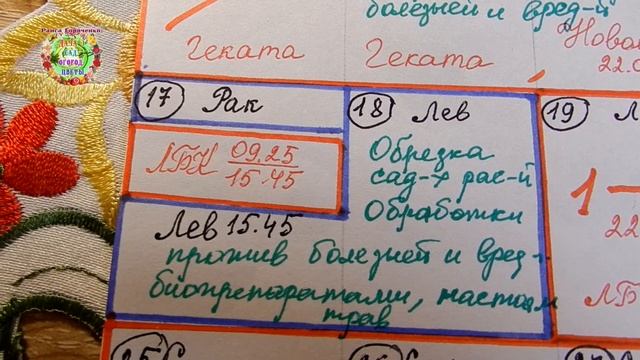 Раиса Гороченко
ДАЧА
САД
ОГОРОД
ЦВЕТЫ
болезней и вред-й
Геката Геката
22.0
17 Рак
18 Лев
19 Л
ЛБК 09.25
15.45
Обрезка
сад-х рас-й
Обработки
1 –
22
Лев 15.45
против болезней и вред-
биопрепаратами, настоем
трав
ЛБ